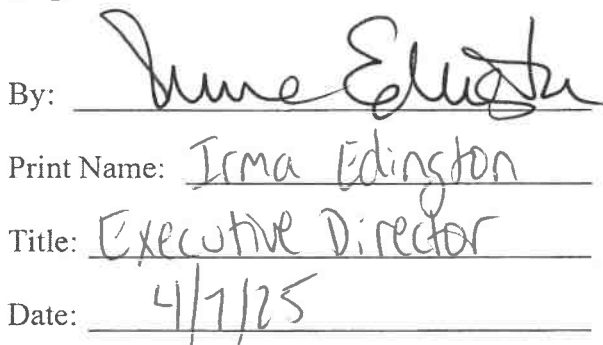 By: Irma Edington
Print Name: Irma Edington
Title: Executive Director
Date: 4/7/25